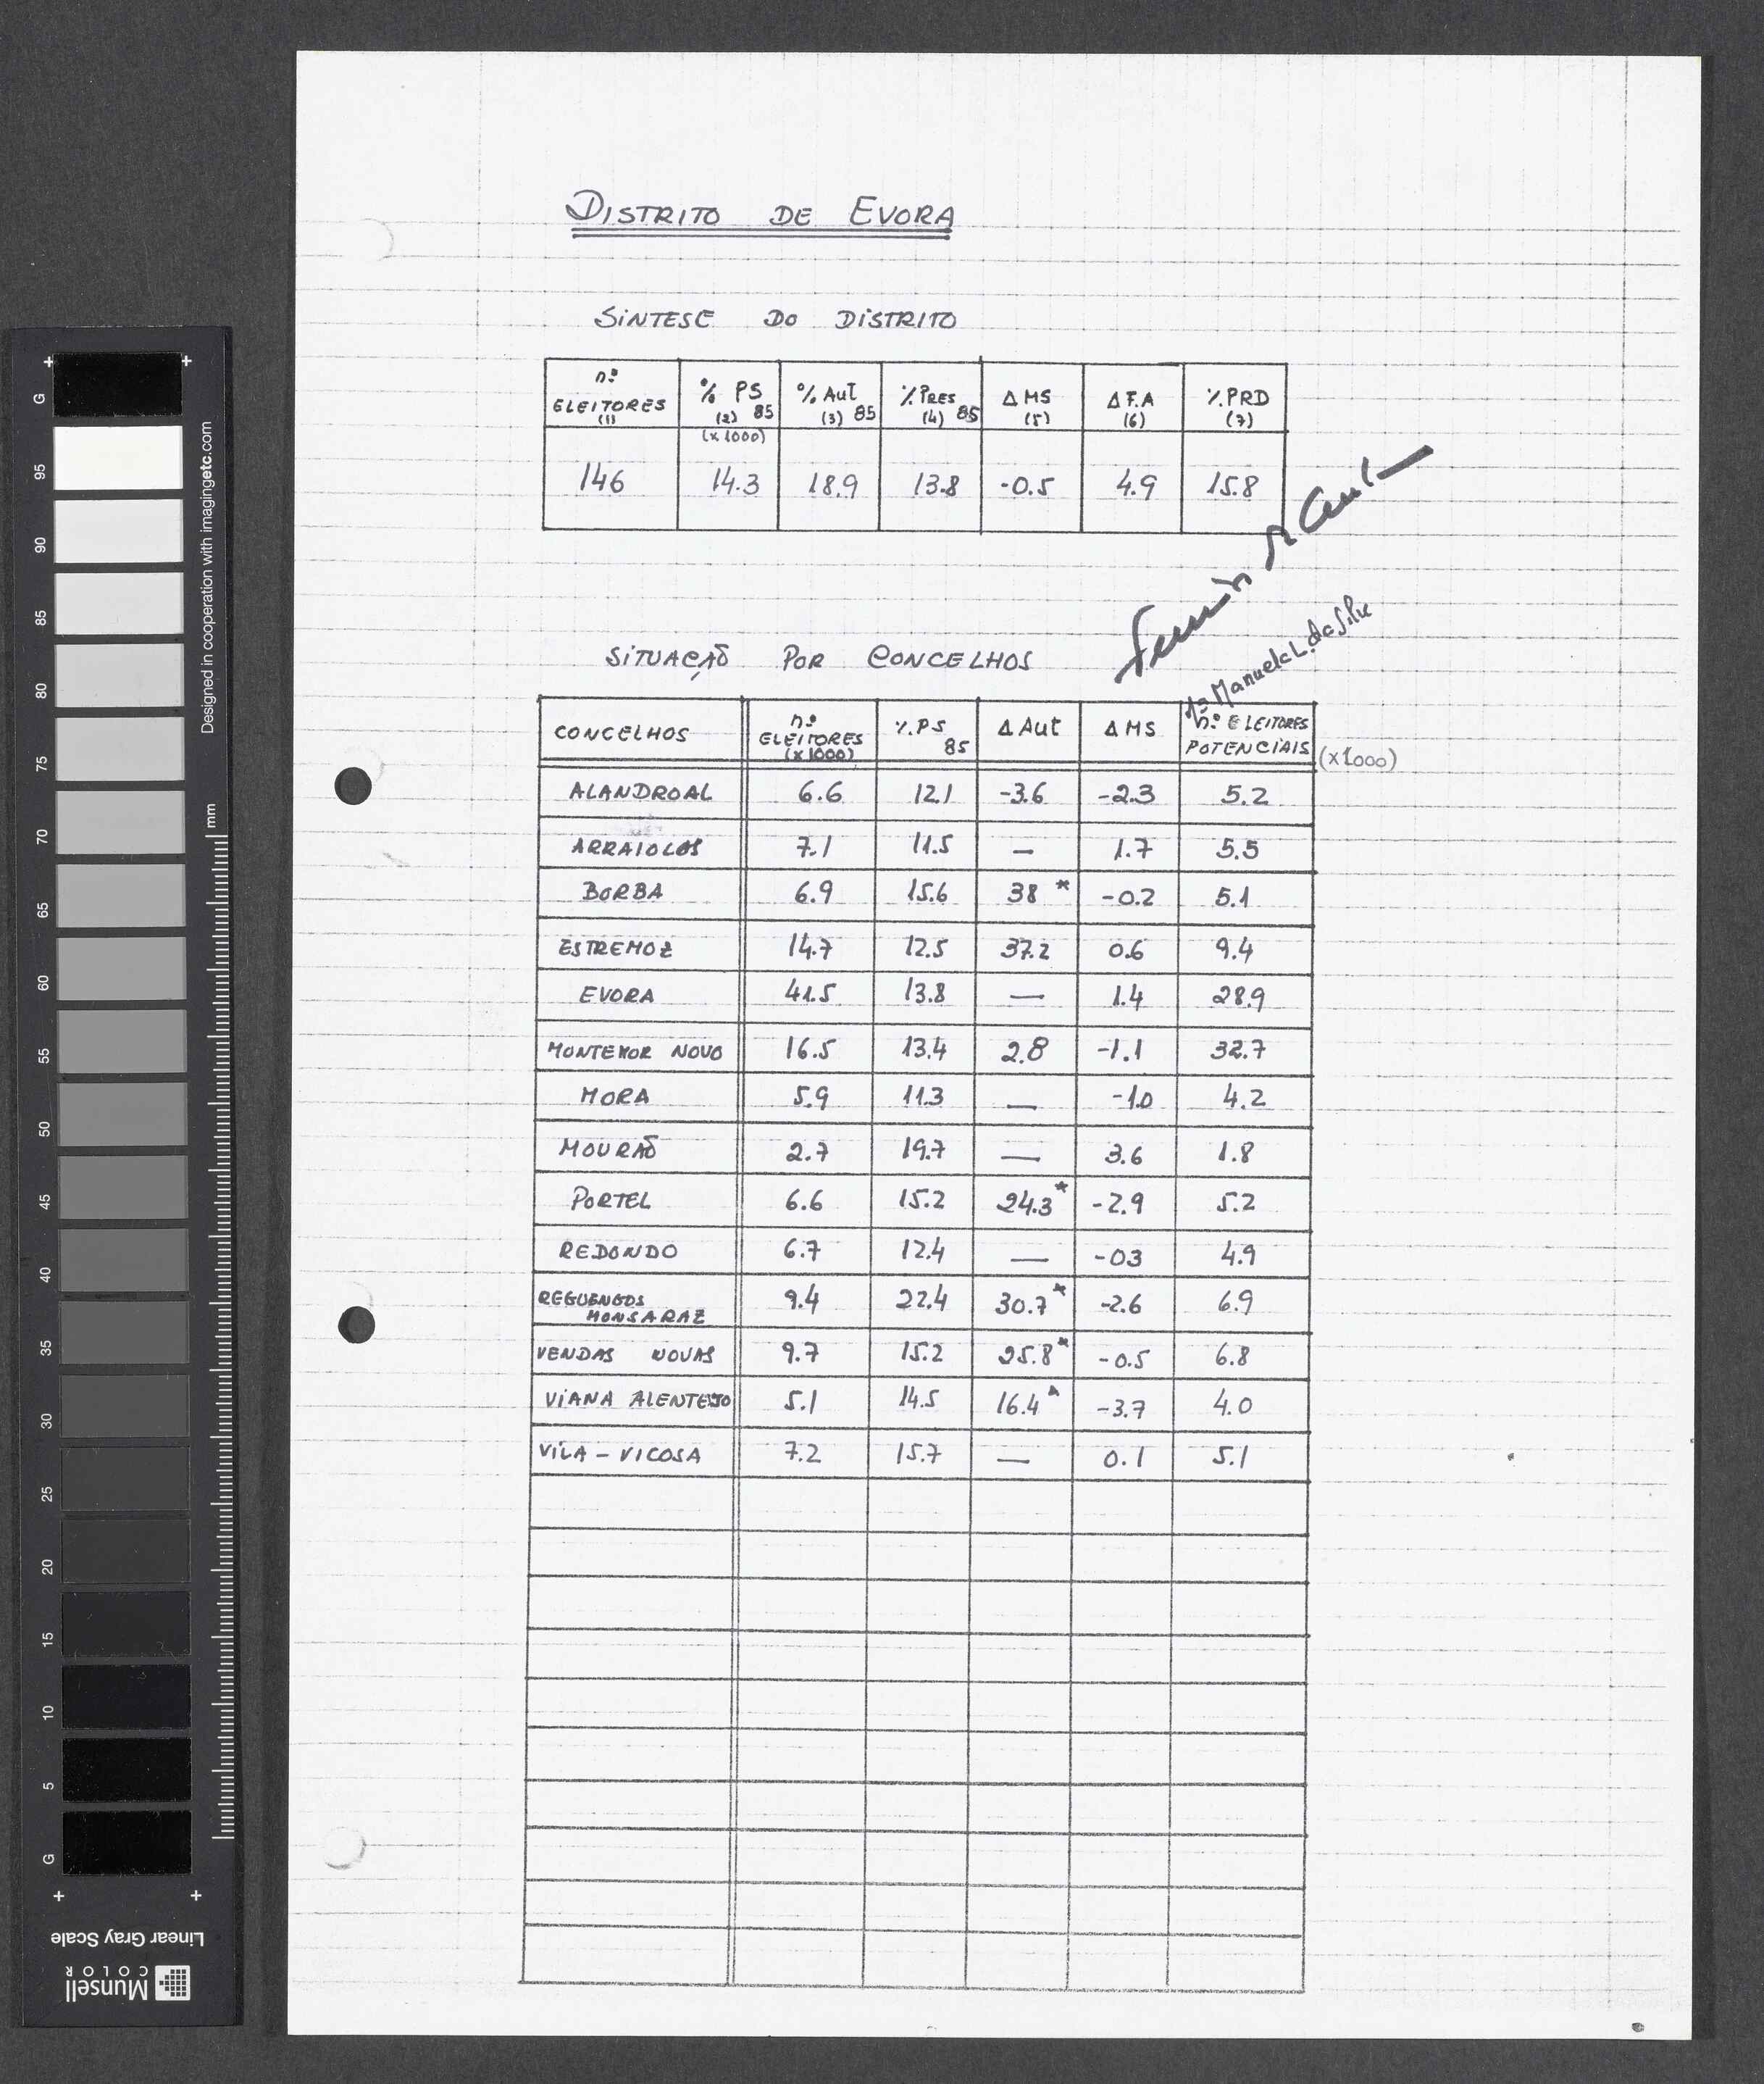 DISTRITO DE EVORA
SINTESE DO DISTRITO
nº ELEITORES (1) % PS (2) 85 % Aut (3) 85 % PRES (4) 85 Δ MS (5) Δ F.A (6) % PRD (7)
(x 1000)
146 14.3 18.9 13.8 -0.5 4.9 15.8
Mª Manuela L. da Silva
SITUAÇÃO POR CONCELHOS
CONCELHOS nº ELEITORES (x 1000) % PS 85 Δ Aut Δ MS nº ELEITORES POTENCIAIS (x 1000)
ALANDROAL 6.6 12.1 -3.6 -2.3 5.2
ARRAIOLOS 7.1 11.5 — 1.7 5.5
BORBA 6.9 15.6 38 * -0.2 5.1
ESTREMOZ 14.7 12.5 37.2 0.6 9.4
EVORA 41.5 13.8 — 1.4 28.9
MONTEMOR NOVO 16.5 13.4 2.8 -1.1 32.7
MORA 5.9 11.3 — -1.0 4.2
MOURÃO 2.7 19.7 — 3.6 1.8
PORTEL 6.6 15.2 24.3 * -2.9 5.2
REDONDO 6.7 12.4 — -03 4.9
REGUENGOS MONSARAZ 9.4 22.4 30.7 * -2.6 6.9
VENDAS NOVAS 9.7 15.2 25.8 * -0.5 6.8
VIANA ALENTEJO 5.1 14.5 16.4 * -3.7 4.0
VILA - VICOSA 7.2 15.7 — 0.1 5.1
G
95
90
85
80
75
70
65
60
55
50
45
40
35
30
25
20
15
10
5
G
mm
Designed in cooperation with imagingetc.com
Linear Gray Scale
Munsell
COLOR